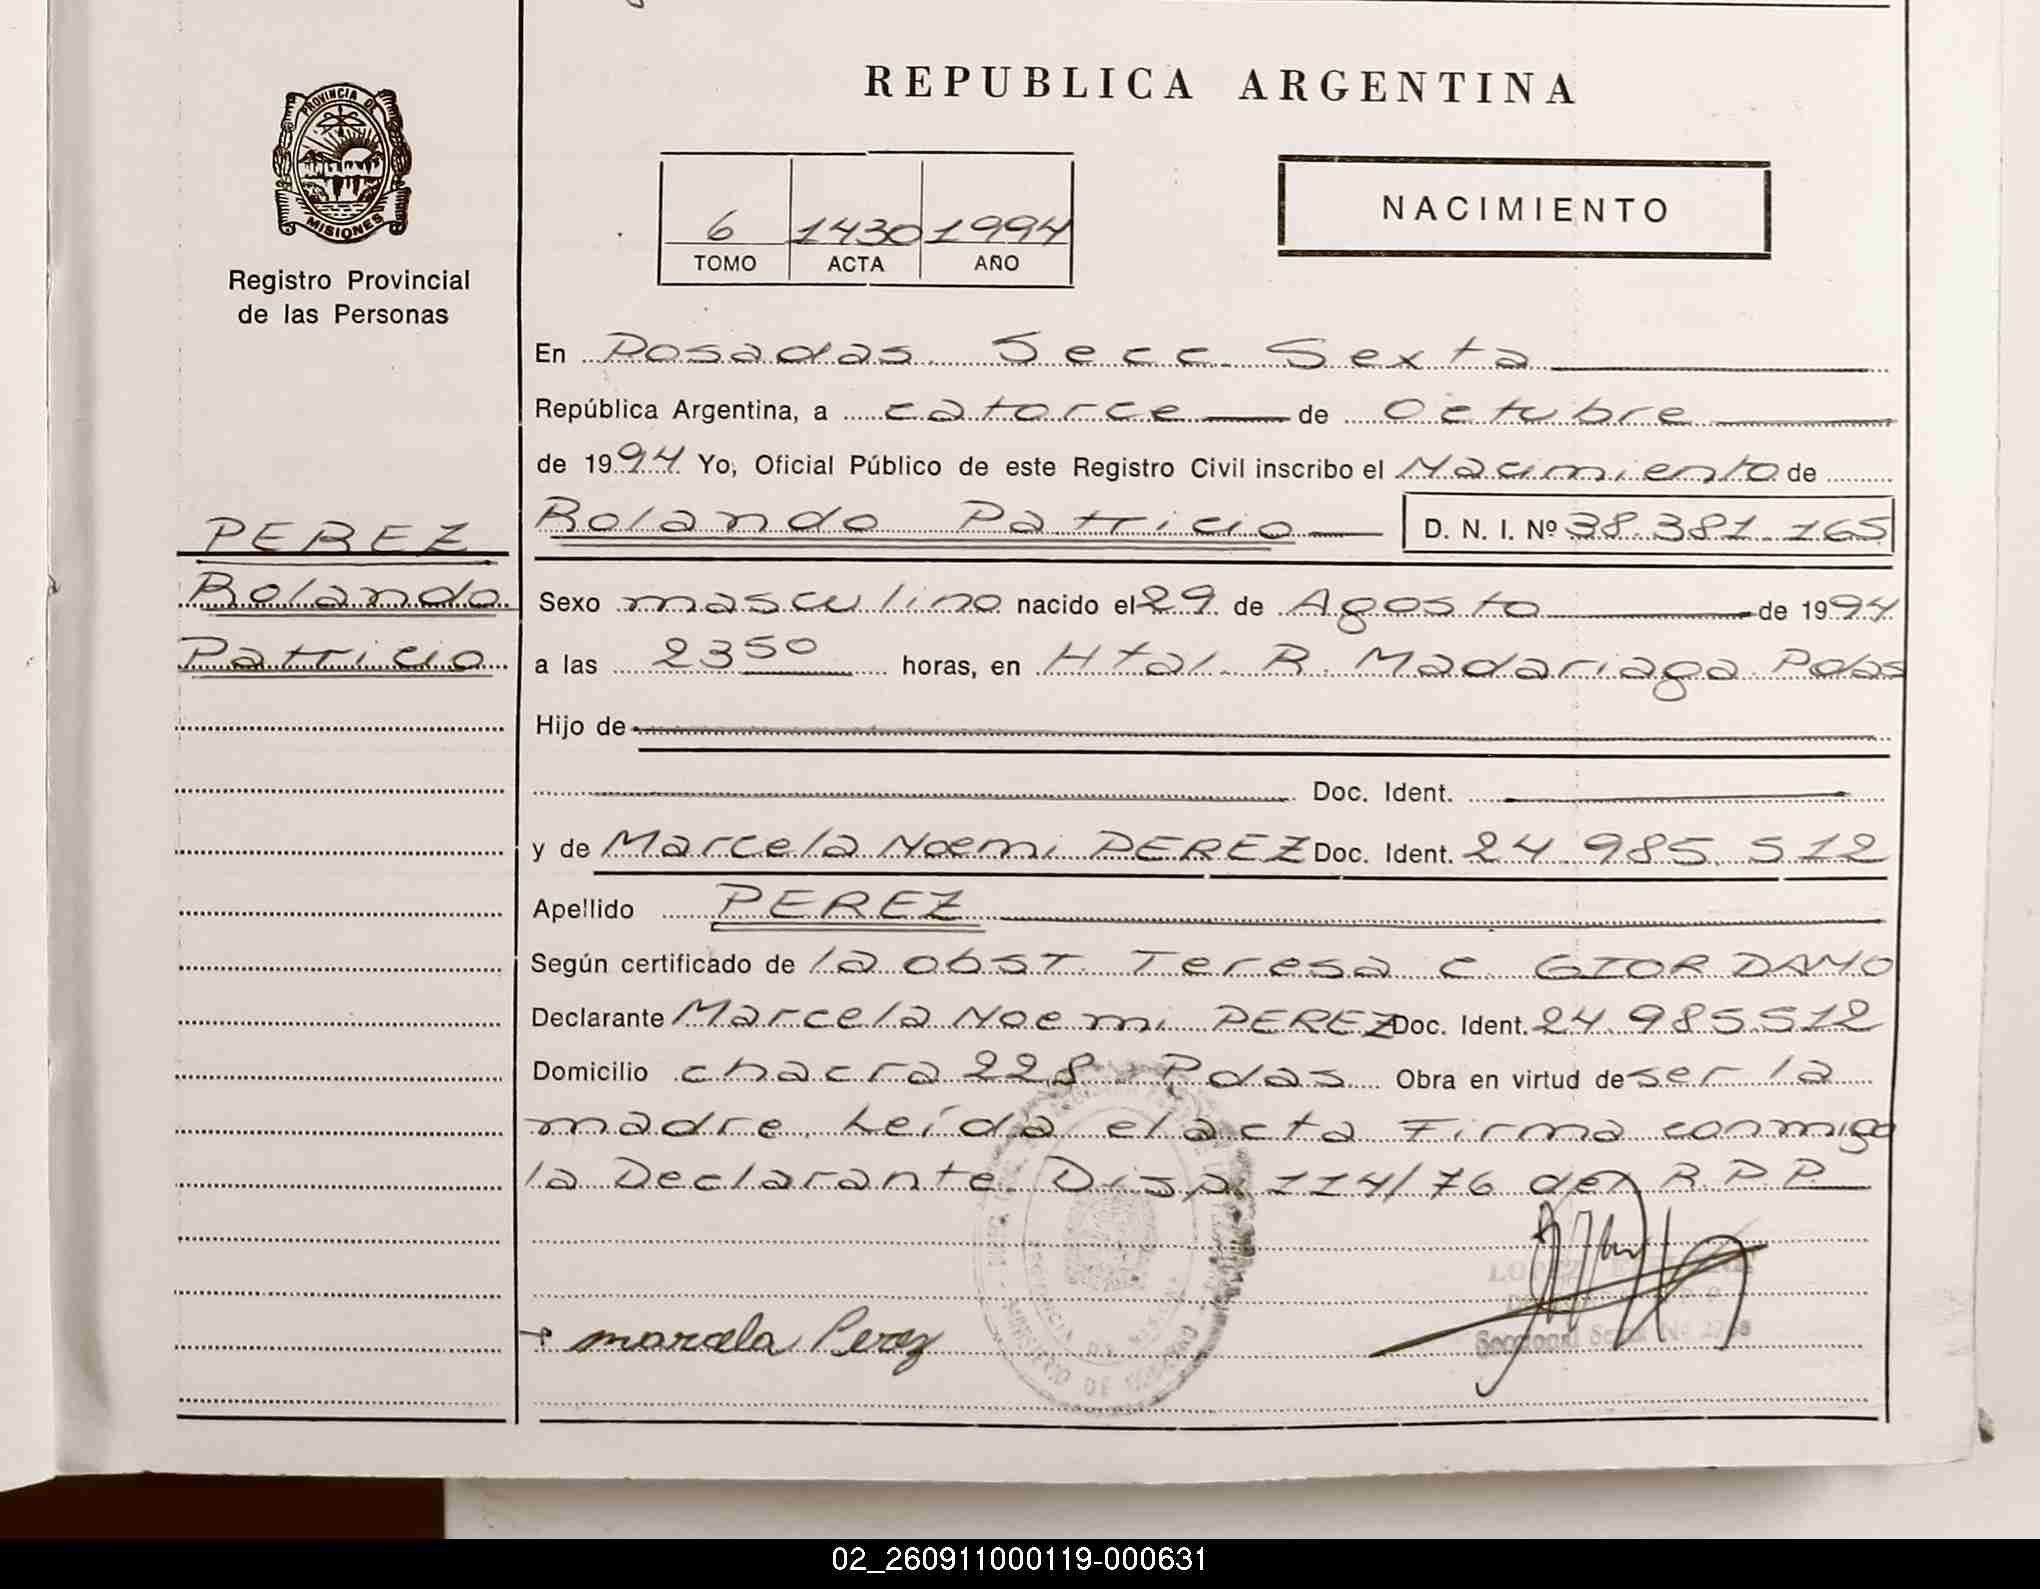 REPUBLICA ARGENTINA
PROVINCIA DE
MISIONES
Registro Provincial
de las Personas
6 1430 1994
TOMO ACTA AÑO
NACIMIENTO
En Posadas Secc. Sexta
República Argentina, a catorce de Octubre
de 1994 Yo, Oficial Público de este Registro Civil inscribo el Nacimiento de
PEREZ
Rolando
Patricio
Rolando Patricio D. N. I. Nº 38.381.165
Sexo masculino nacido el 29 de Agosto de 1994
a las 2350 horas, en Htal. R. Madariaga Pdas
Hijo de
Doc. Ident.
y de Marcela Noemi PEREZ Doc. Ident. 24.985.512
Apellido PEREZ
Según certificado de la obst. Teresa C. GIORDANO
Declarante Marcela Noemi PEREZ Doc. Ident. 24.985512
Domicilio chacra 228 Pdas Obra en virtud de ser la
madre. Leída el acta Firma conmigo
la Declarante Disp. 114/76 del R.P.P.
marcela Perez
Seccional
MINISTERIO DE GOBIERNO
02_260911000119-000631